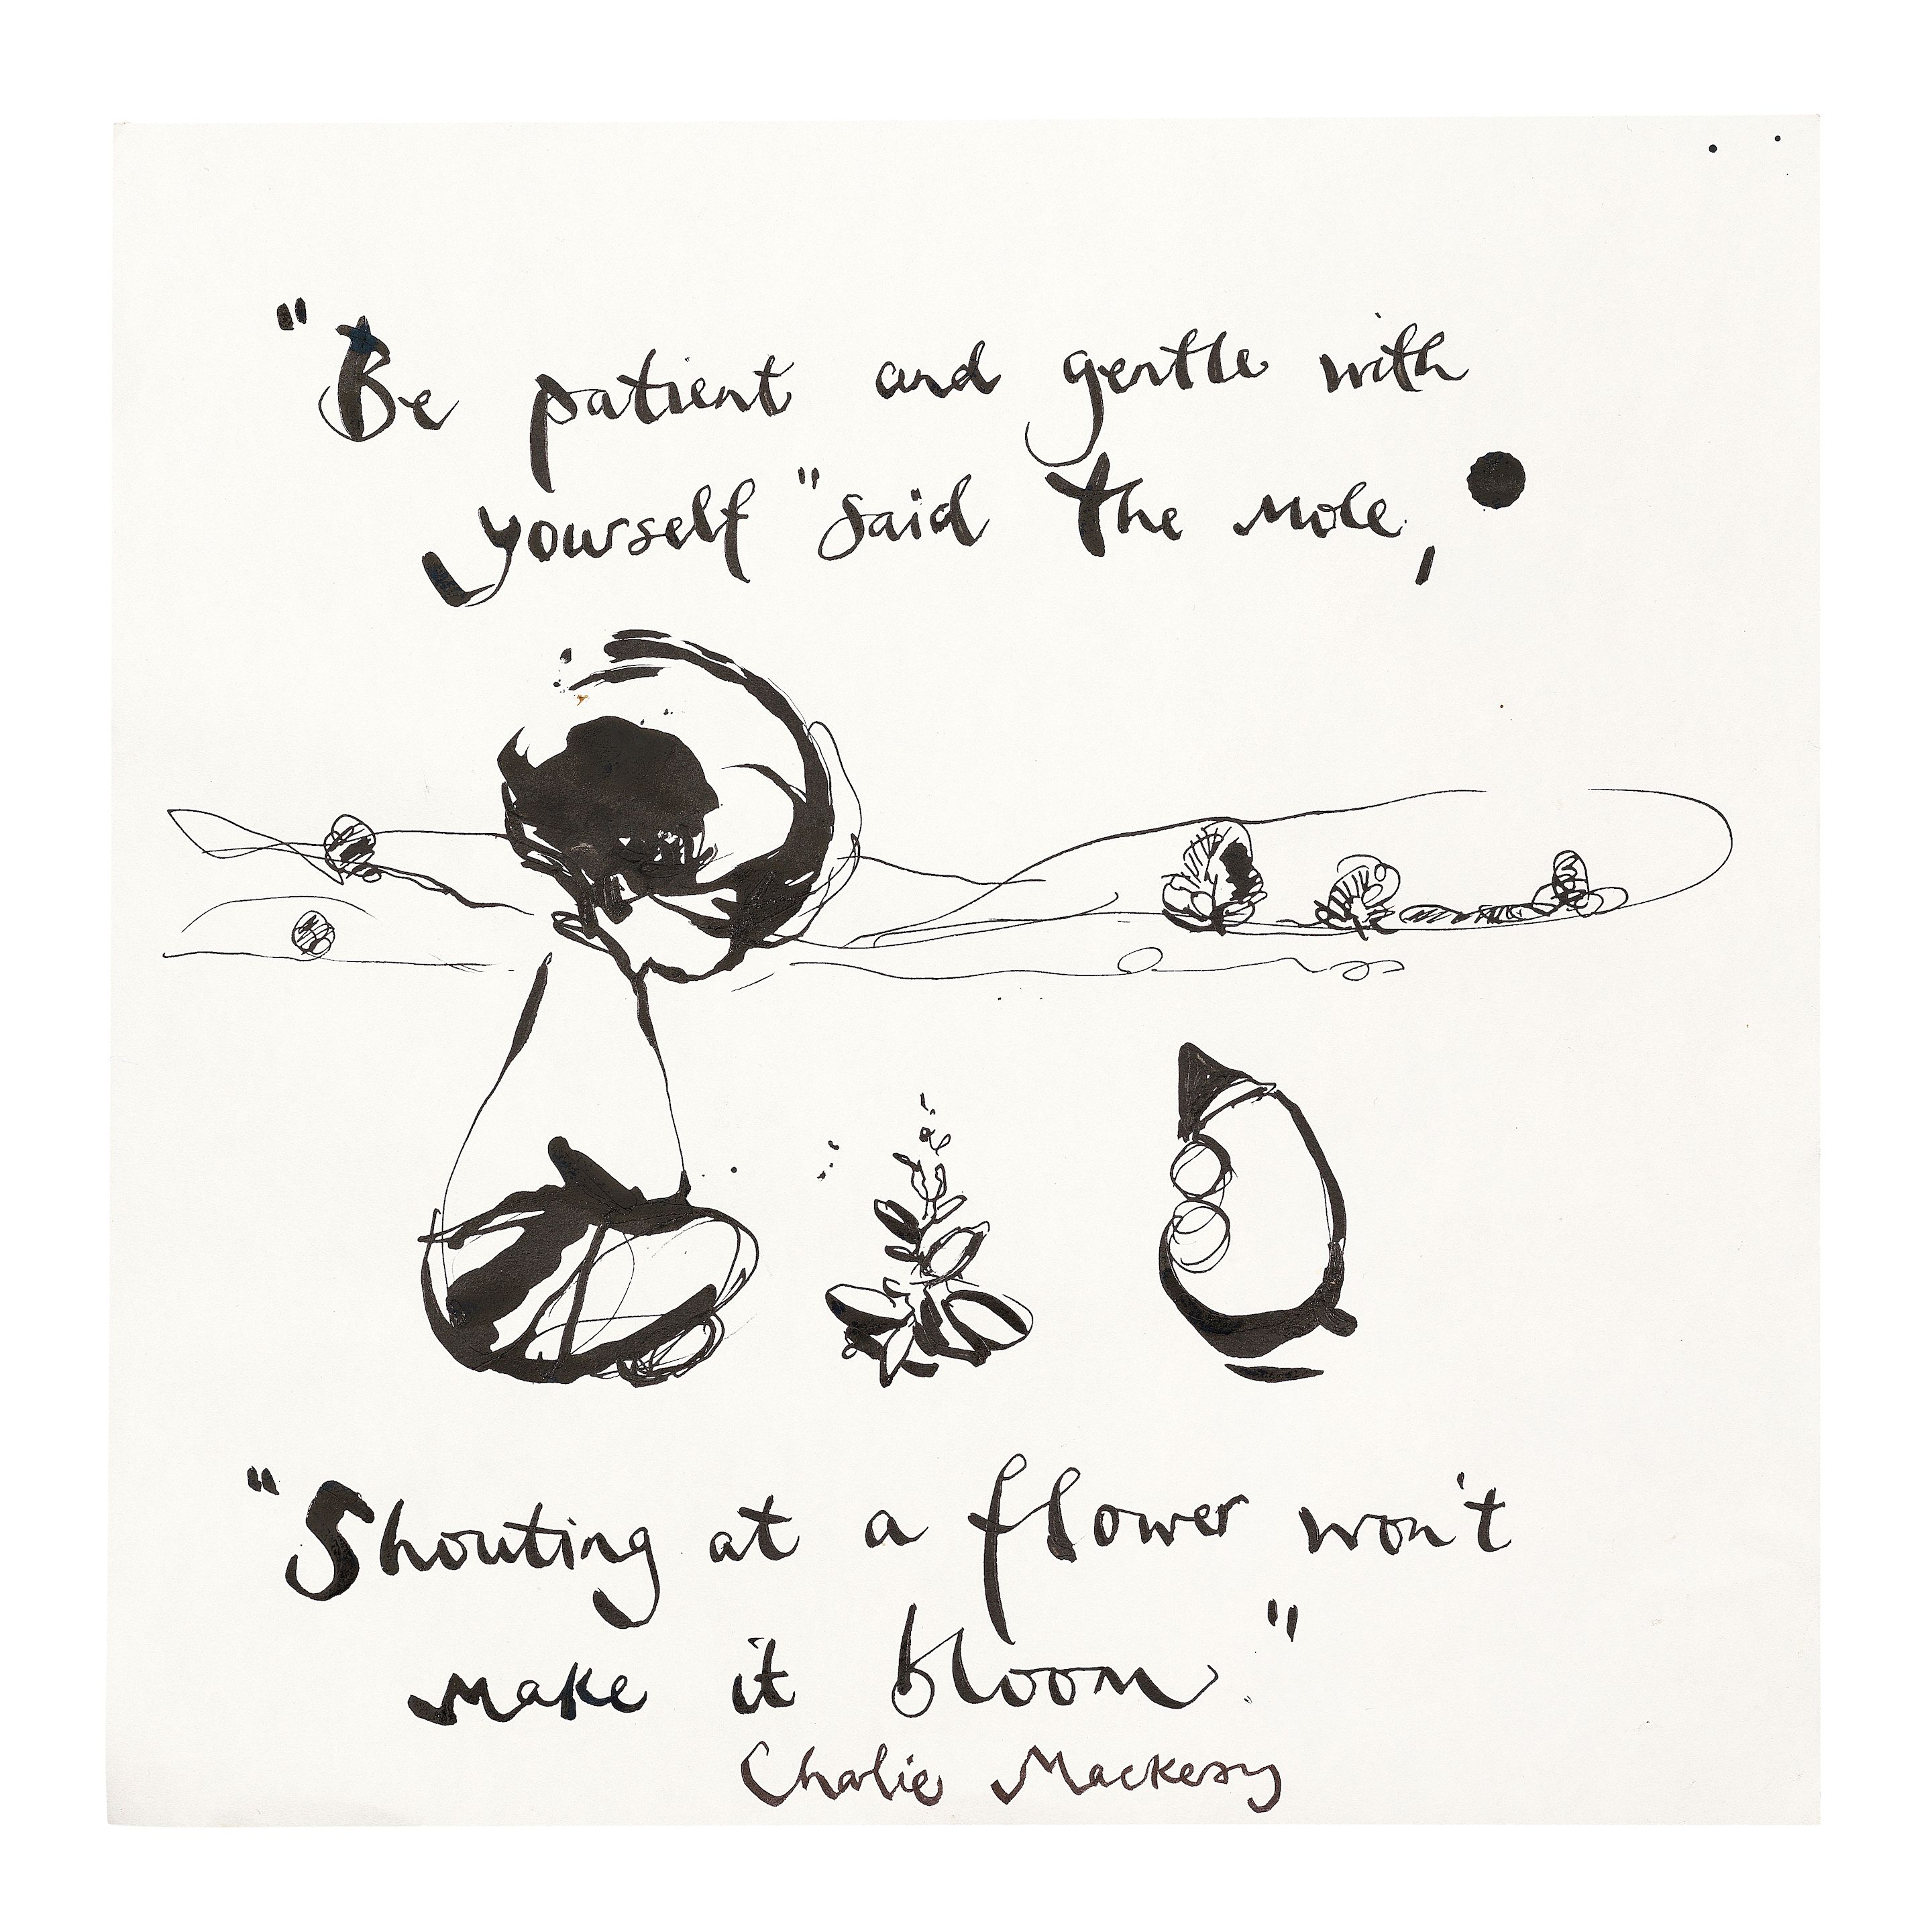 "Be patient and gentle with
yourself" said the mole,
"Shouting at a flower won't
make it bloom."
Charlie Mackesy